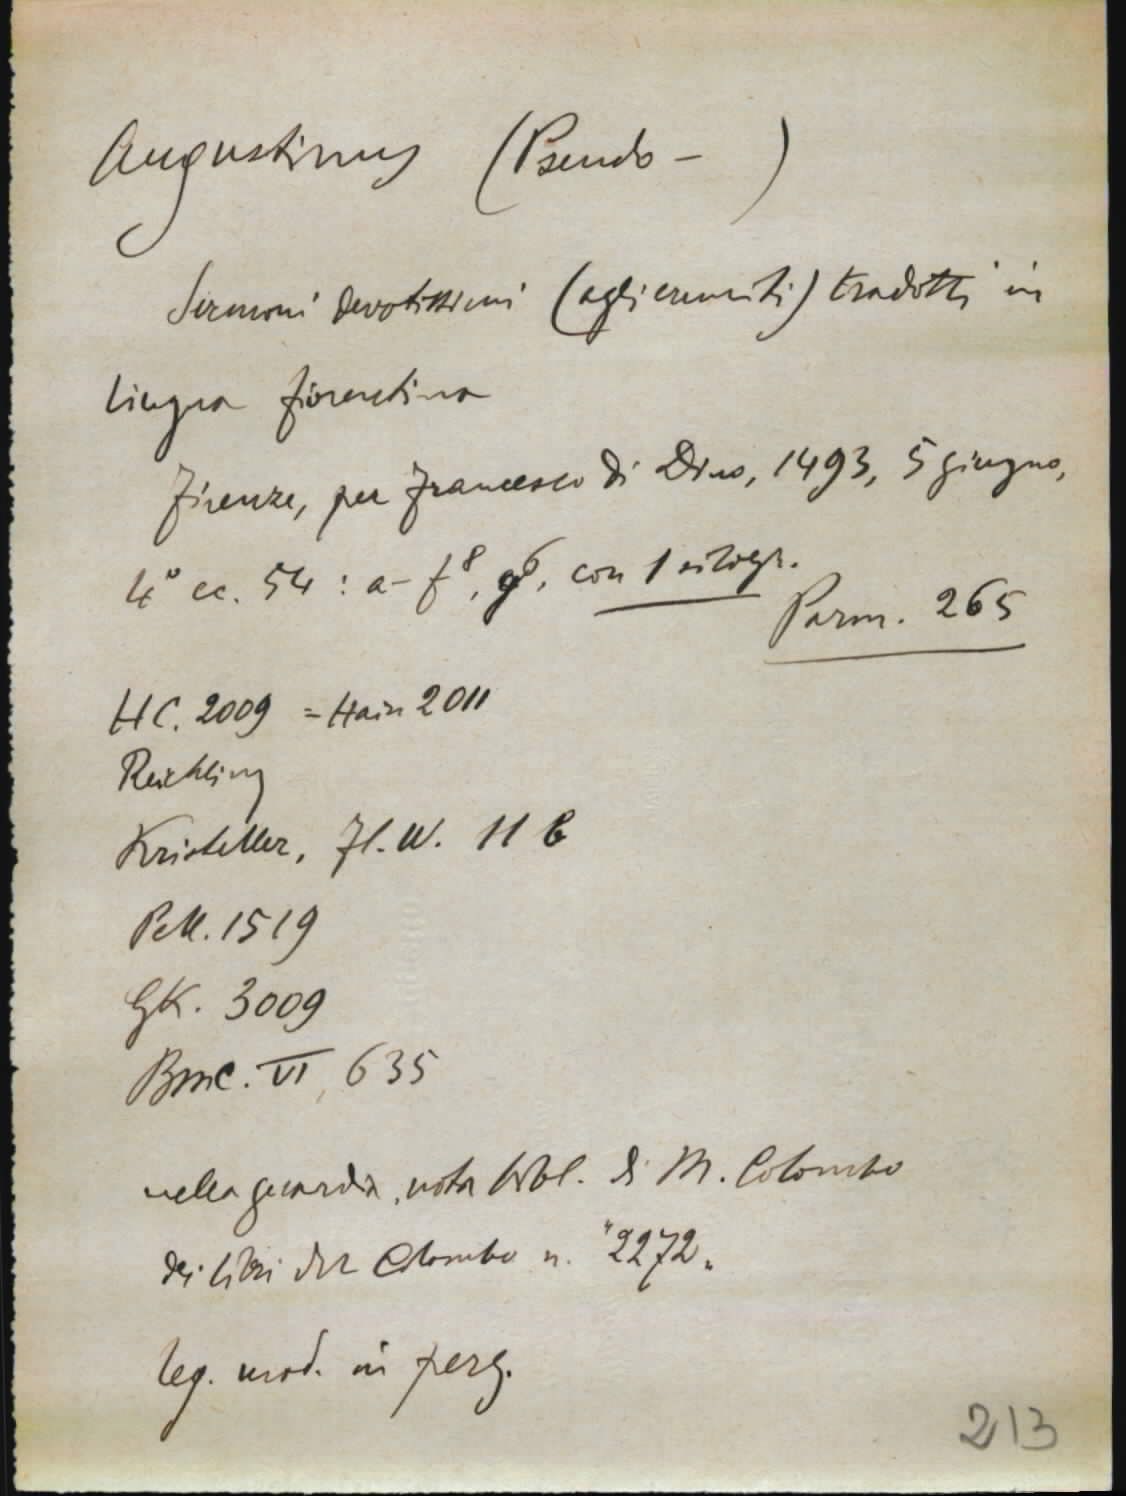 Augustinus (Pseudo - )
Sermoni devotissimi (agli eremiti) tradotti in
lingua fiorentina
Firenze, per Francesco di Dino, 1493, 5 giugno,
4° cc. 54 : a-f⁸, g⁶. con 1 silogr.
Parm. 265
HC. 2009 = Hain 2011
Reichling
Kristeller, Fl. W. 11 b
Pell. 1519
GK. 3009
BMC. VI, 635
nella guardia, nota bibl. di M. Colombo
dei libri del Colombo n. "2272"
leg. mod. in perg.
213